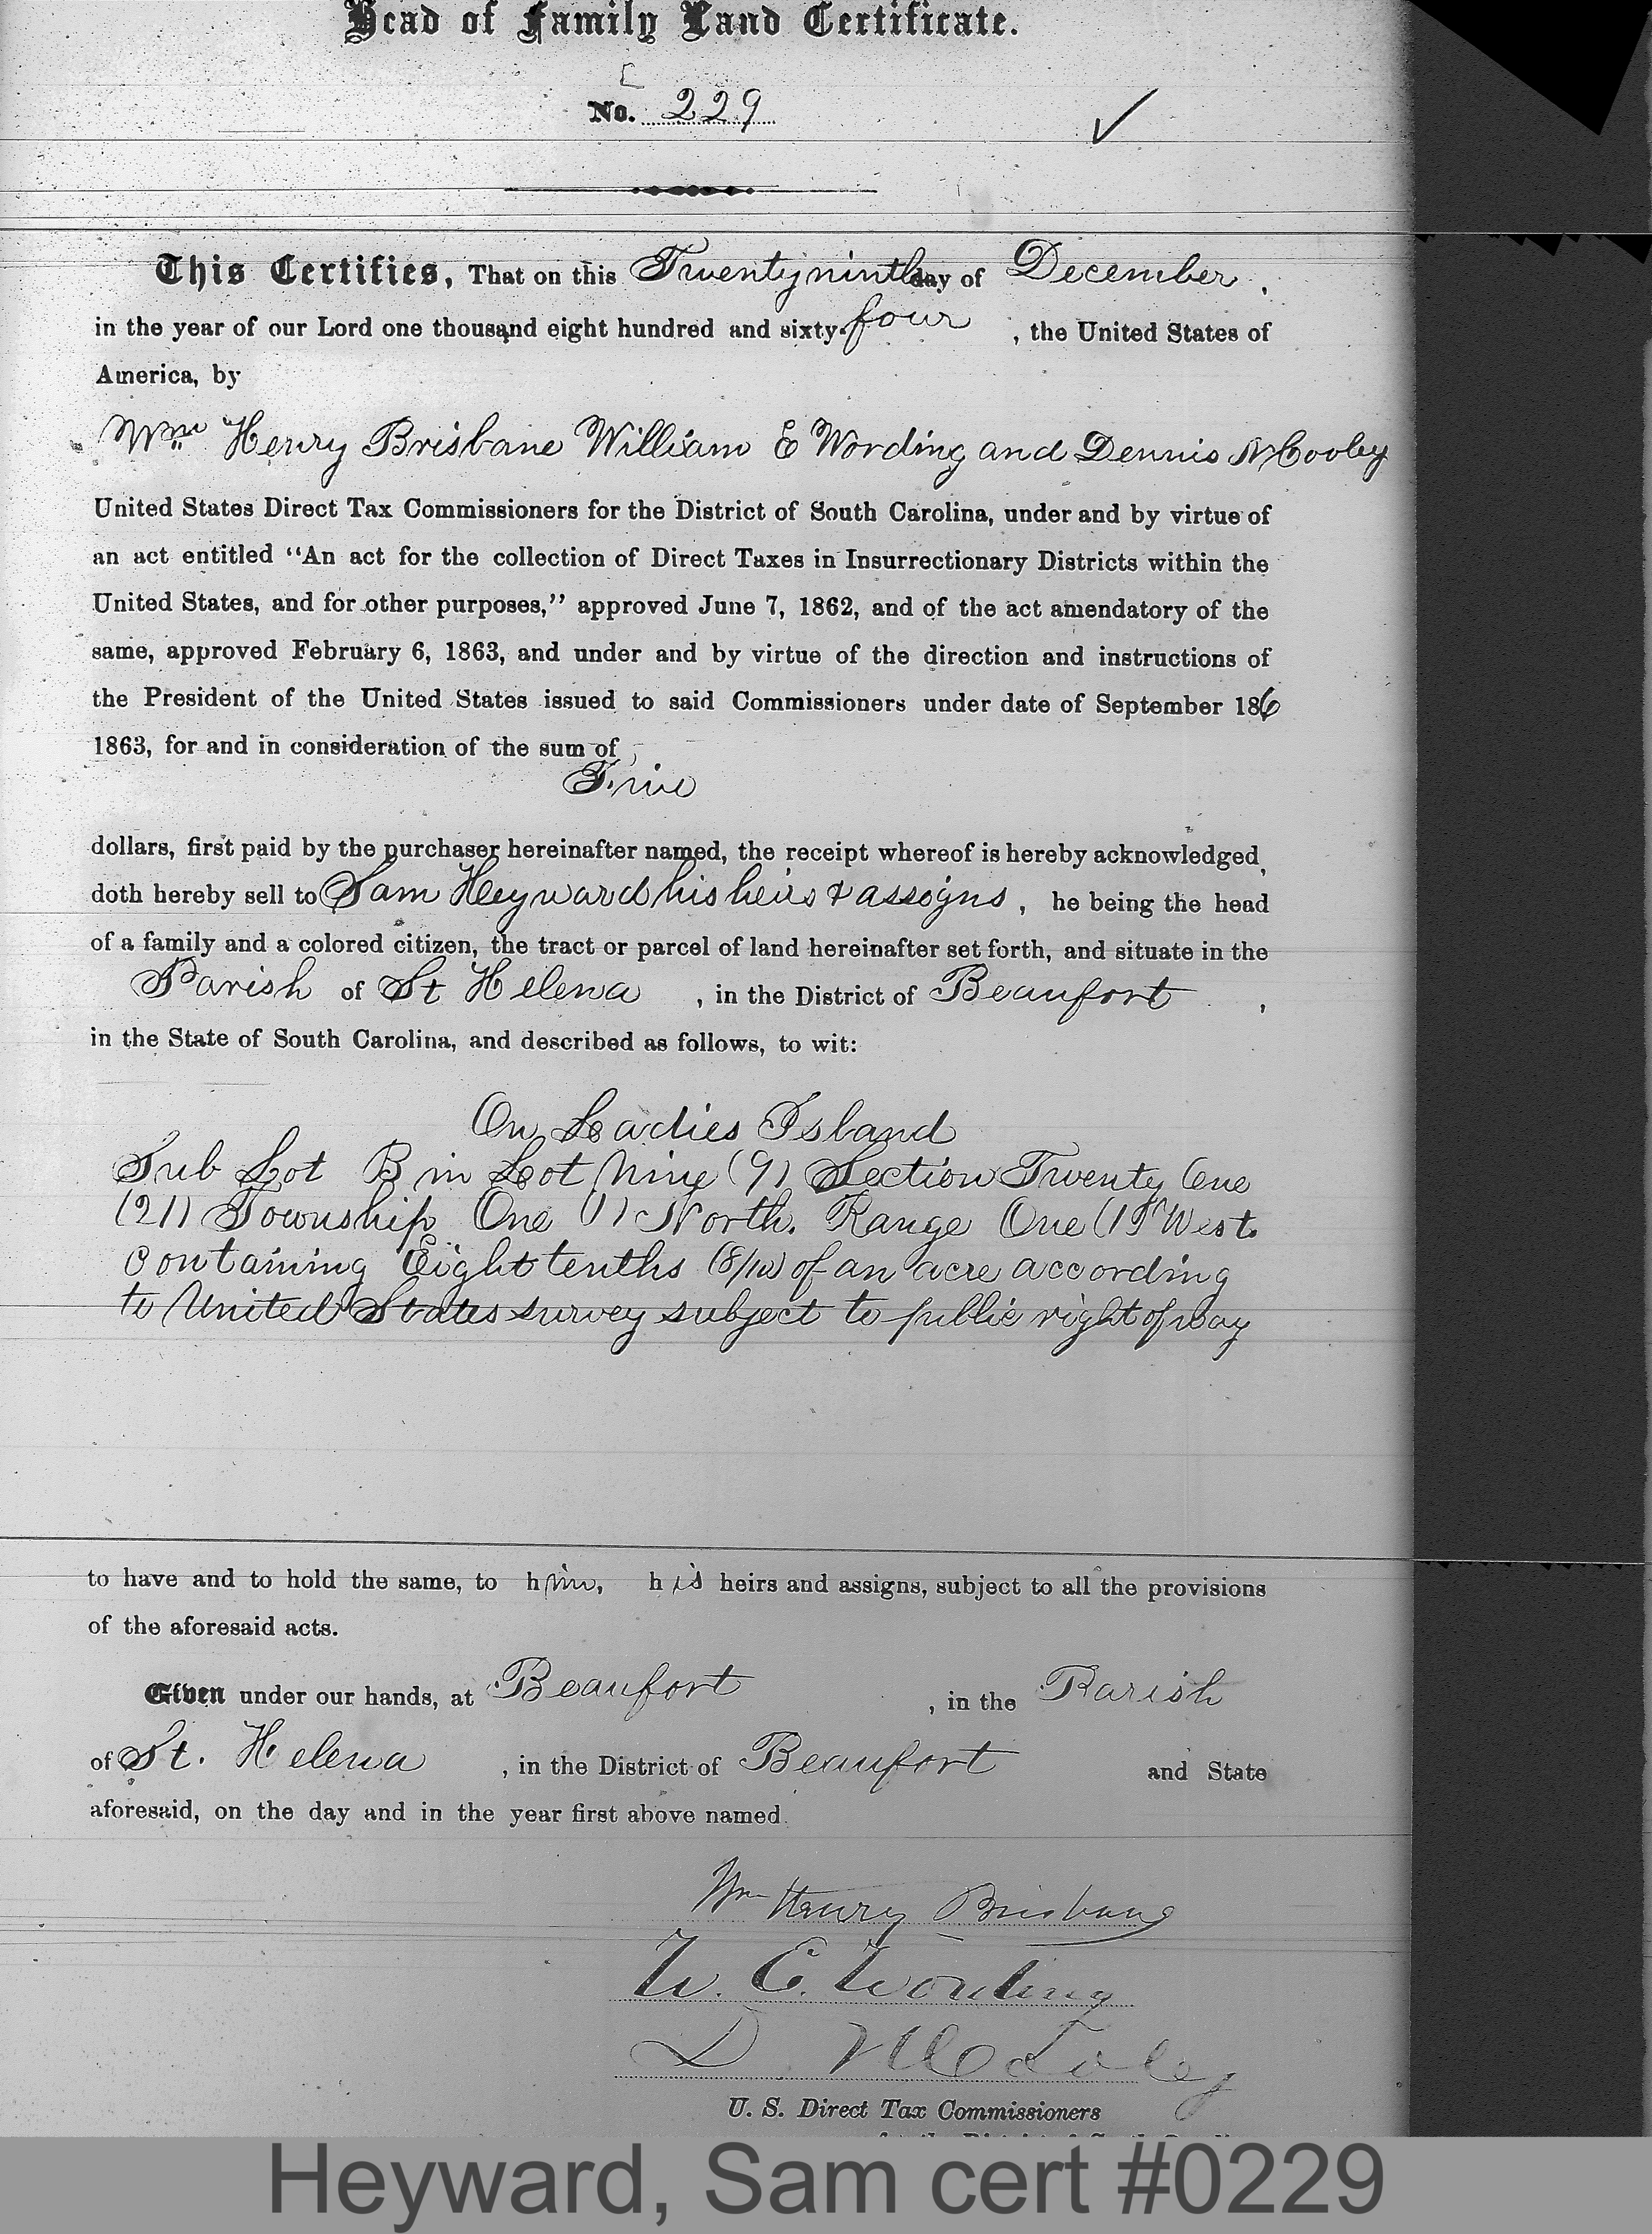 Head of Family Land Certificate.
No. 229
This Certifies, That on this Twentyninth day of December,
in the year of our Lord one thousand eight hundred and sixty-four, the United States of
America, by
Wm Henry Brisbane William E Wording and Dennis N Cooley
United States Direct Tax Commissioners for the District of South Carolina, under and by virtue of
an act entitled “An act for the collection of Direct Taxes in Insurrectionary Districts within the
United States, and for other purposes,” approved June 7, 1862, and of the act amendatory of the
same, approved February 6, 1863, and under and by virtue of the direction and instructions of
the President of the United States issued to said Commissioners under date of September 16
1863, for and in consideration of the sum of
Five
dollars, first paid by the purchaser hereinafter named, the receipt whereof is hereby acknowledged,
doth hereby sell to Sam Heyward his heirs & assigns, he being the head
of a family and a colored citizen, the tract or parcel of land hereinafter set forth, and situate in the
Parish of St Helena, in the District of Beaufort,
in the State of South Carolina, and described as follows, to wit:
On Ladies Island
Sub Lot B in Lot Nine (9) Section Twenty One
(21) Township One (1) North. Range One (1) West.
containing Eight tenths (8/10) of an acre according
to United States survey subject to public right of way
to have and to hold the same, to him, his heirs and assigns, subject to all the provisions
of the aforesaid acts.
Given under our hands, at Beaufort, in the Parish
of St. Helena, in the District of Beaufort and State
aforesaid, on the day and in the year first above named.
Wm Henry Brisbane
W. E. Wording
D N Cooley
U. S. Direct Tax Commissioners
Heyward, Sam cert #0229